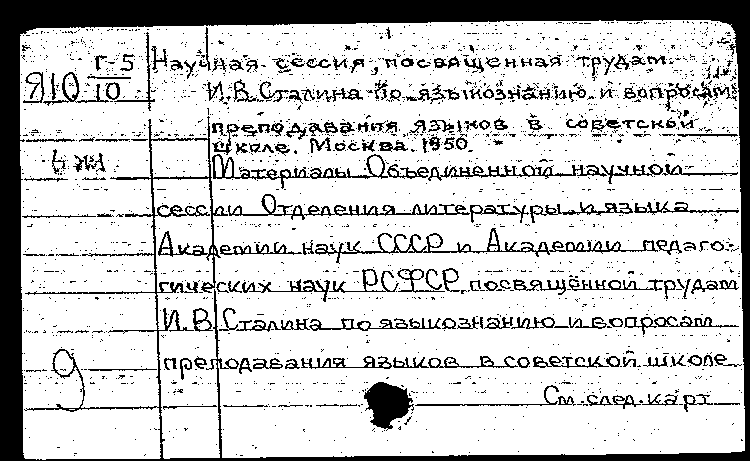 Я10 Г-5
10
Научная сессия, посвященная трудам
И.В.Сталина по языкознанию и вопросам
преподавания языков в советской
школе. Москва. 1950.
Материалы Объединенной научной
сессии Отделения литературы и языка
Академии наук СССР и Академии педаго-
гических наук РСФСР, посвящённой трудам
И.В.Сталина по языкознанию и вопросам
преподавания языков в советской школе
См.след.карт.